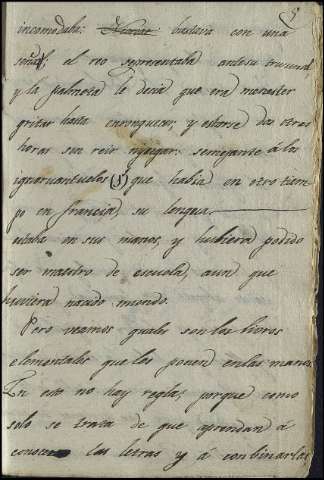 incomodaba: bastava con una
señal, el reo representaba ante su tribunal
y la palmeta le decia que era menester
gritar hasta enronquecer, y estarse dos otras
horas sin reir ni jugar: semejante á los
ignorantuelos (1) que había en otro tiem
po en francia, su lengua
estaba en sus manos, y hubiera podido
ser maestro de escuela, aun que
huviera nacido mudo.
Pero veamos quales son los libros
elementales que les ponen en las manos.
En esto no hay regla; porque como
solo se trata de que aprendan á
conocer las letras y á combinarlas